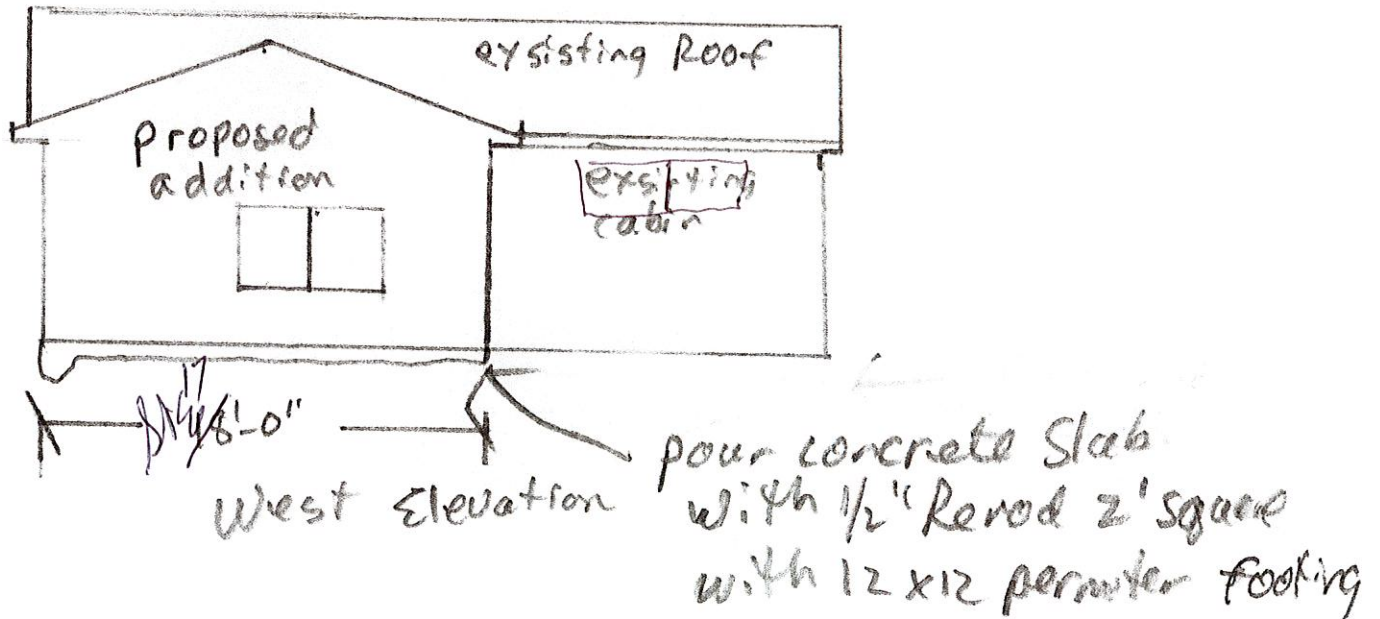 exsisting Roof
proposed
addition
exsisting
cabin
17
8'-0"
West Elevation
pour concrete Slab
with 1/2" Rerod 2' square
with 12 x 12 permiter footing